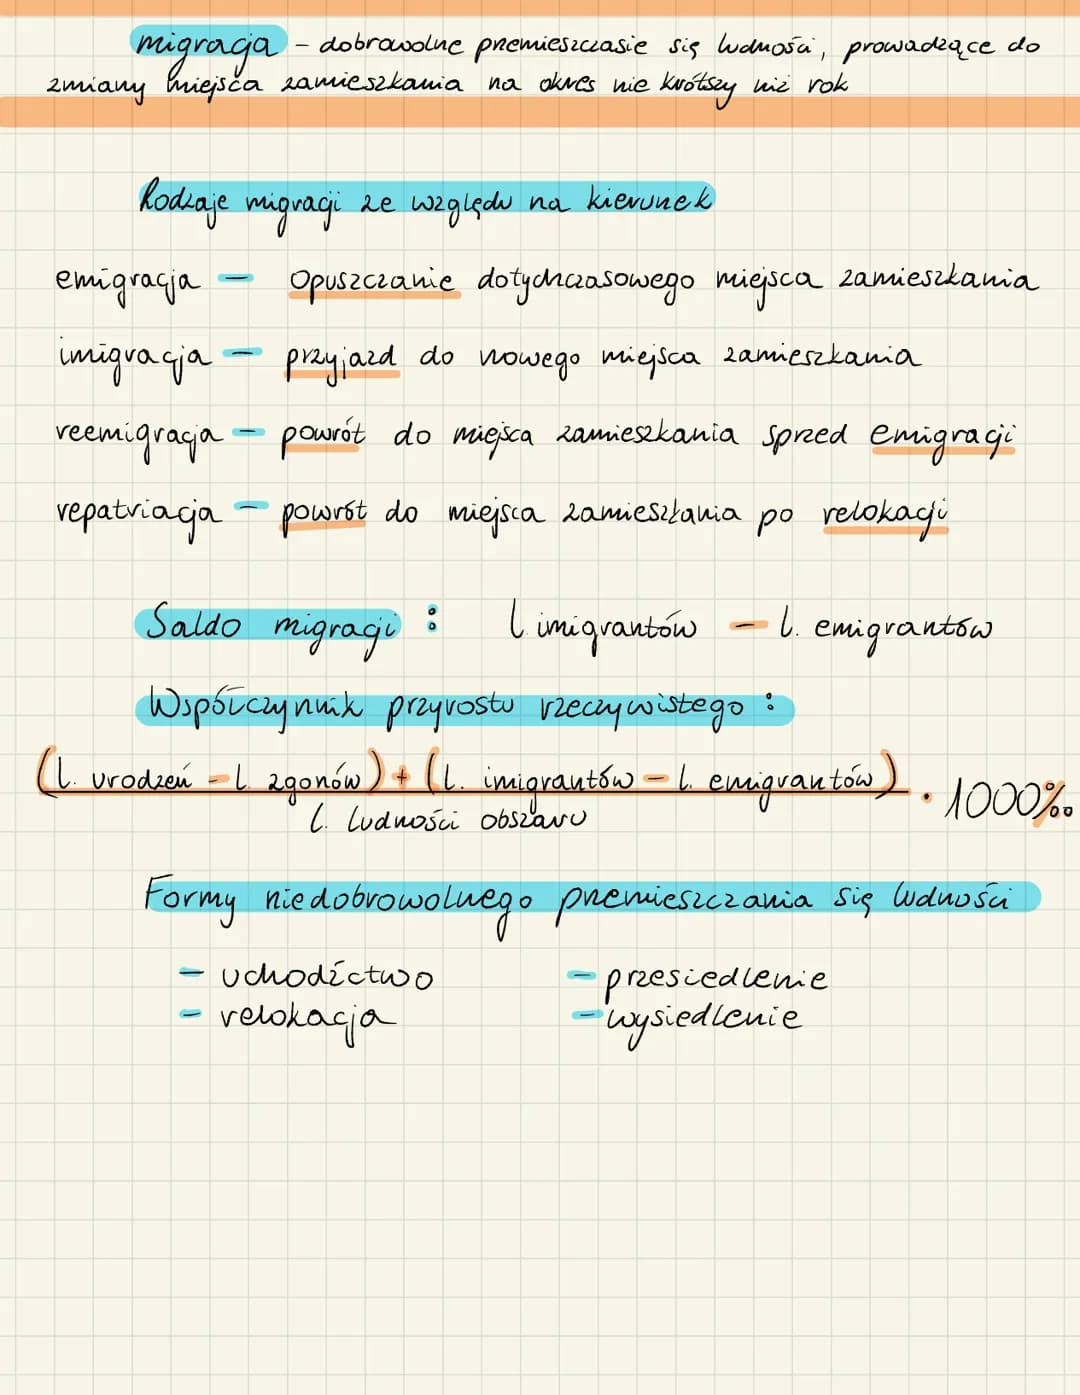 migracja – dobrowolne przemieszczasie się ludności, prowadzące do
zmiany miejsca zamieszkania na okres nie krótszy niż rok
Rodzaje migracji ze względu na kierunek
emigracja – opuszczanie dotychczasowego miejsca zamieszkania
imigracja – przyjazd do nowego miejsca zamieszkania
reemigracja – powrót do miejsca zamieszkania sprzed emigracji
repatriacja – powrót do miejsca zamieszkania po relokacji
Saldo migracji : l. imigrantów – l. emigrantów
Współczynnik przyrostu rzeczywistego :
(l. urodzeń – l. zgonów) + (l. imigrantów – l. emigrantów) · 1000‰
l. ludności obszaru
Formy niedobrowolnego przemieszczania się ludności
– uchodźctwo – przesiedlenie
– relokacja – wysiedlenie